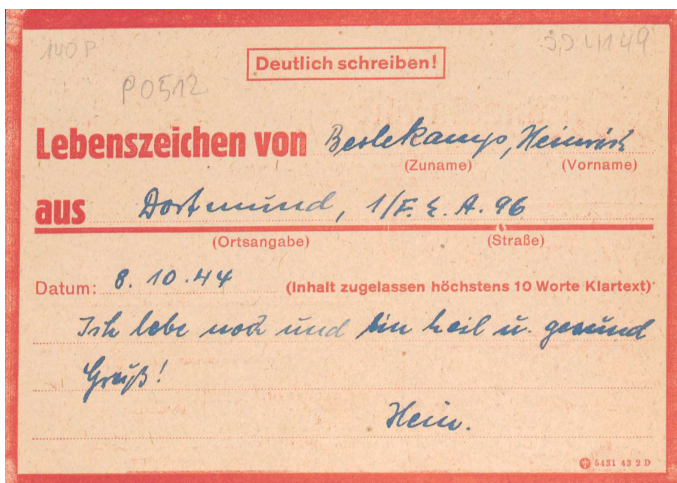 140P
SS 4149
Deutlich schreiben!
P0512
Lebenszeichen von Berlekamp, Heinrich
(Zuname) (Vorname)
aus Dortmund, 1/F.E.A.96
(Ortsangabe) (Straße)
Datum: 8.10.44 (Inhalt zugelassen höchstens 10 Worte Klartext)
Ich lebe noch und bin heil u. gesund
Gruß!
Hein.
5431 43 2 D